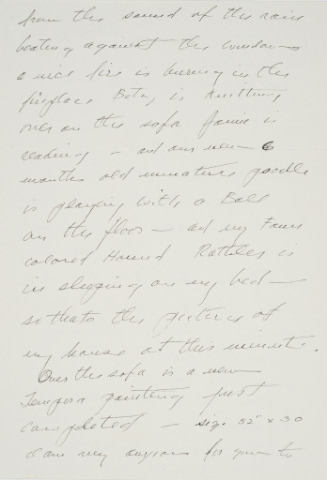 from the sound of the rain
beating against the windows
a nice fire is burning in the
fireplace Betsy is knitting
over on the sofa Jamie is
reading – and our new 6
months old miniature poodle
is playing with a Ball
on the floor – and my Fawn
colored Hound Rattler is
in sleeping on my bed –
so thats the picture of
my house at this minute.
Over the sofa is a new
Tempera painting just
completed – size 52" x 30
I am very anxious for you to